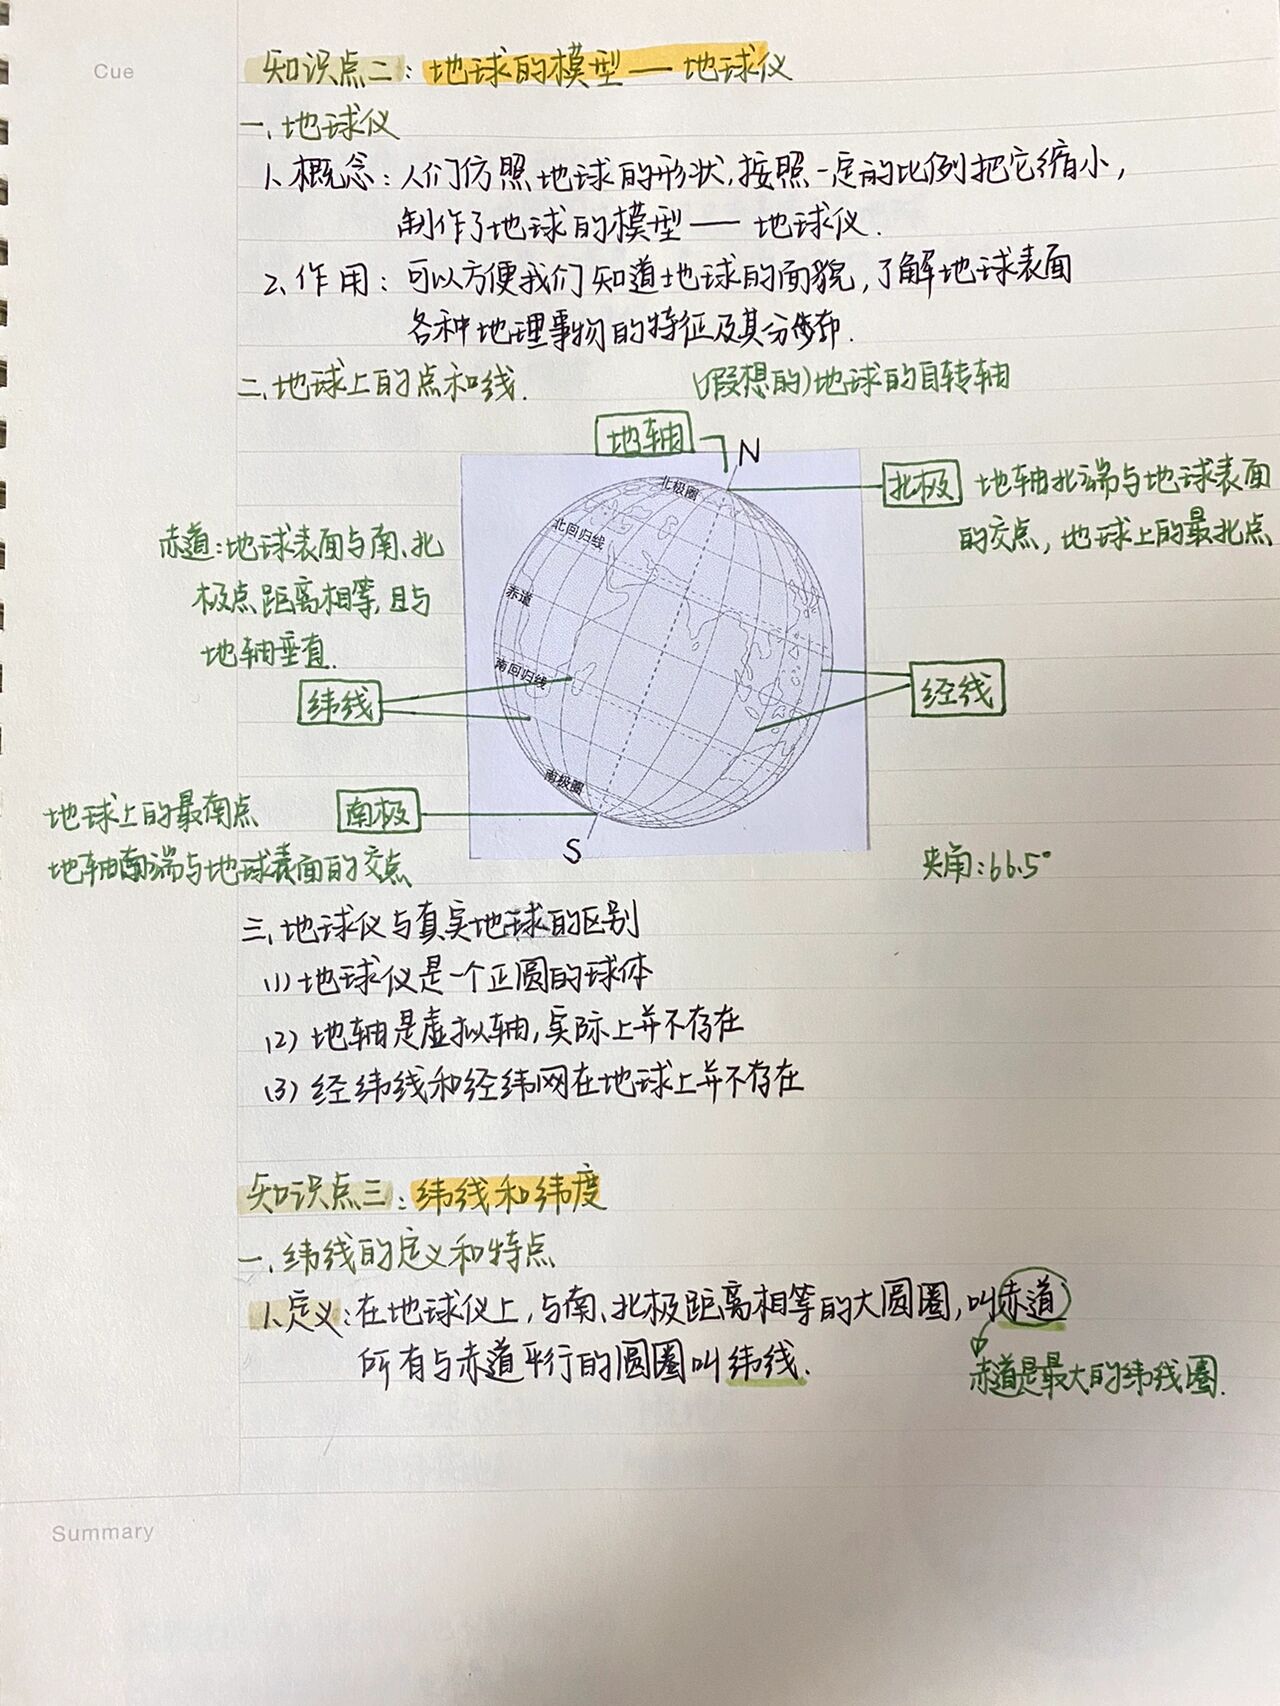 Cue
知识点二：地球的模型——地球仪
一、地球仪
1、概念：人们仿照地球的形状，按照一定的比例把它缩小，
制作了地球的模型——地球仪．
2、作用：可以方便我们知道地球的面貌，了解地球表面
各种地理事物的特征及其分布．
二、地球上的点和线．
(假想的)地球的自转轴
地轴
N
北极圈
北极
地轴北端与地球表面
的交点，地球上的最北点
北回归线
赤道：地球表面与南、北
极点距离相等，且与
地轴垂直．
赤道
南回归线
纬线
经线
南极圈
南极
地球上的最南点
地轴南端与地球表面的交点
S
夹角：66.5°
三、地球仪与真实地球的区别
(1) 地球仪是一个正圆的球体
(2) 地轴是虚拟轴，实际上并不存在
(3) 经纬线和经纬网在地球上并不存在
知识点三：纬线和纬度
一、纬线的定义和特点
1、定义：在地球仪上，与南、北极距离相等的大圆圈，叫赤道
所有与赤道平行的圆圈叫纬线．
赤道是最大的纬线圈．
Summary